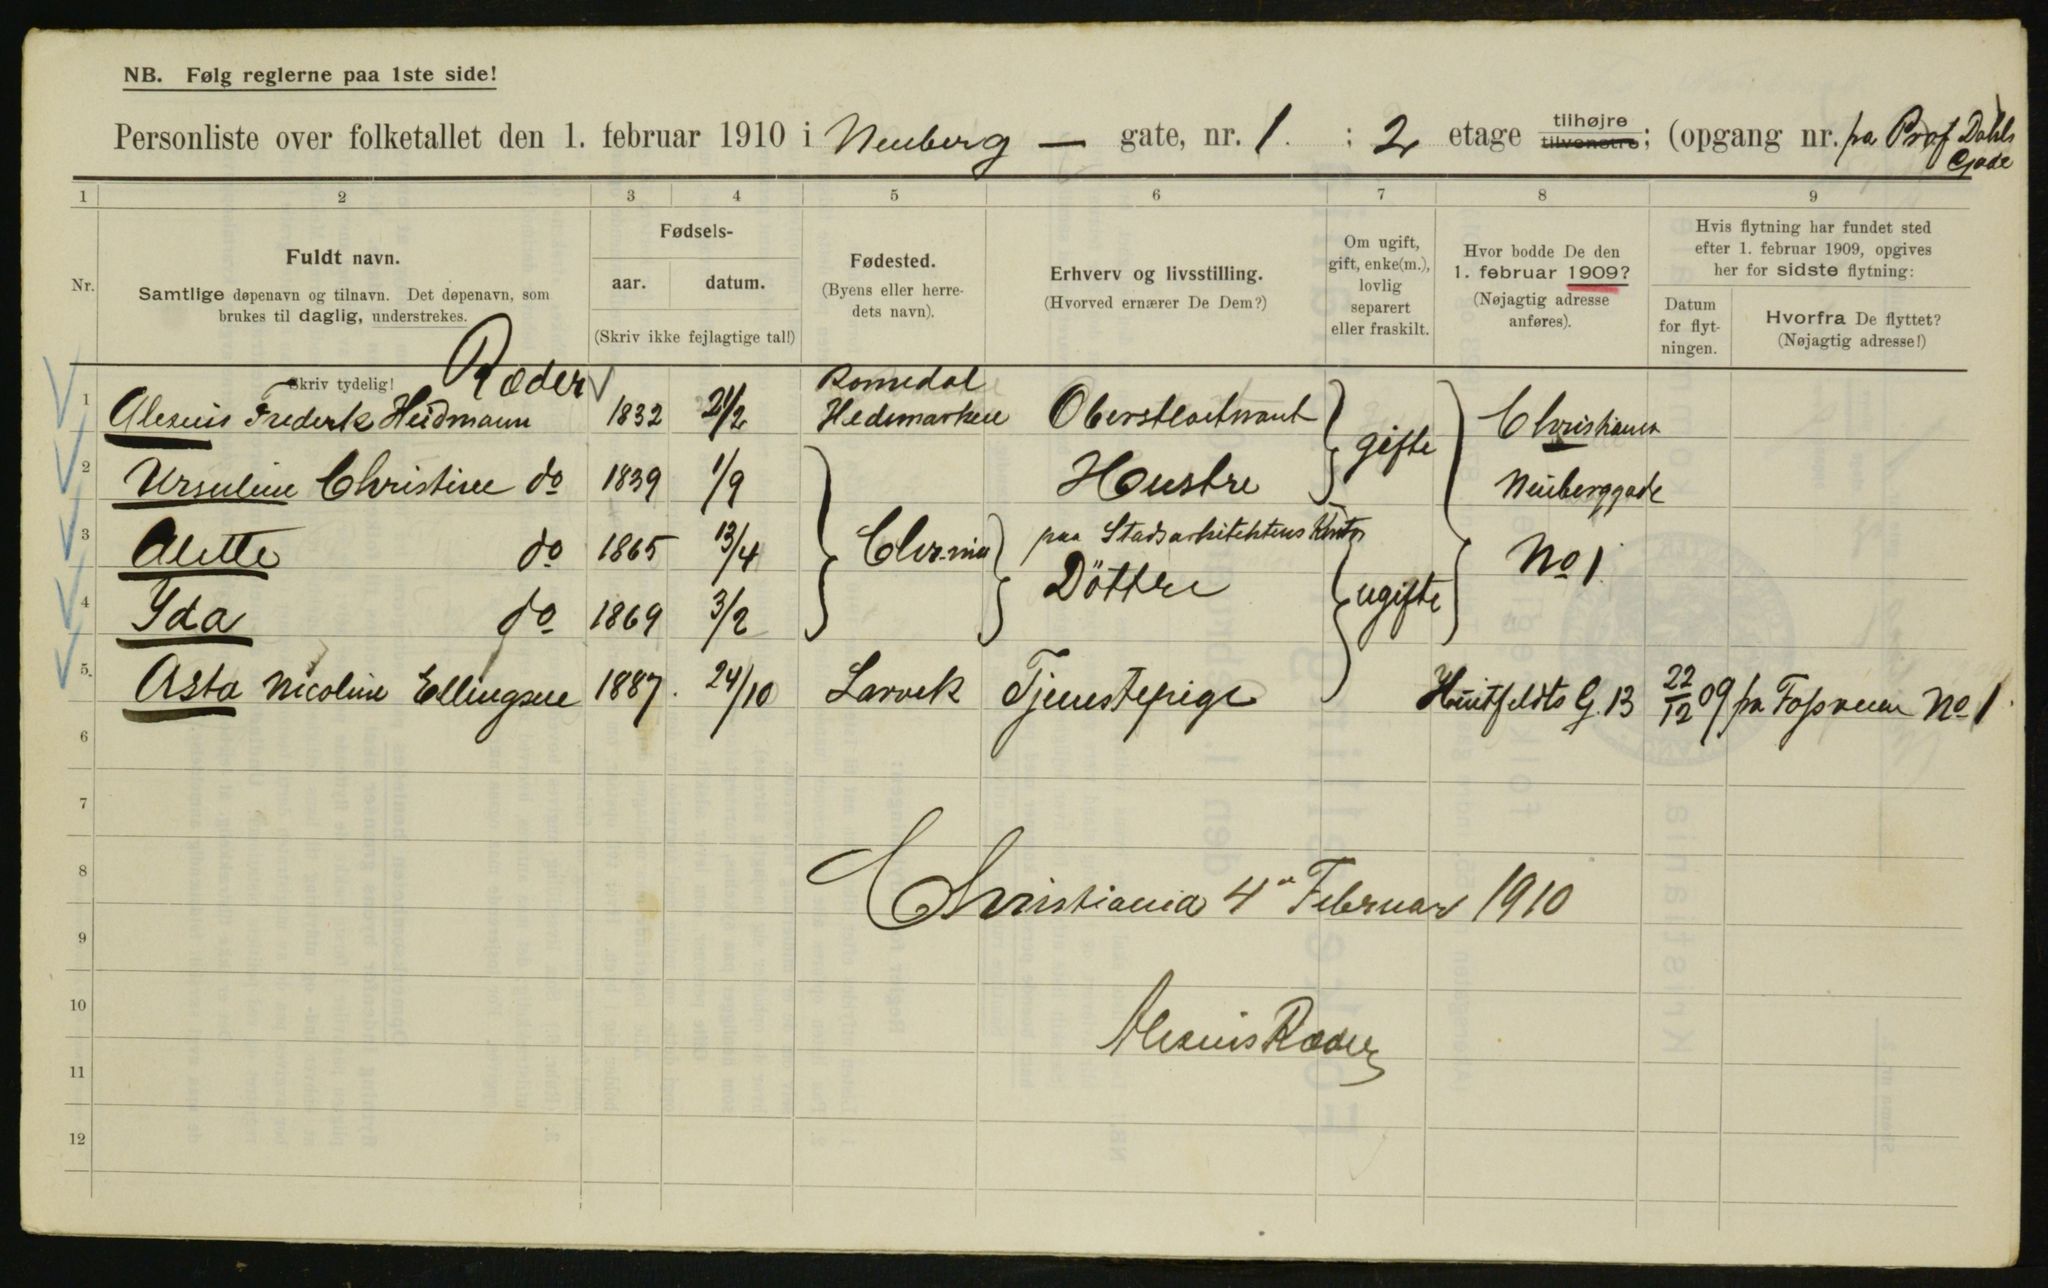 NB. Følg reglerne paa 1ste side!
Personliste over folketallet den 1. februar 1910 i Neuberg — gate, nr. 1. : 2 etage tilhøjre tilvenstre; (opgang nr. fra Prof Dahls Gade
1 2 3 4 5 6 7 8 9
Nr.
Fuldt navn.
Samtlige døpenavn og tilnavn. Det døpenavn, som
brukes til daglig, understrekes.
Skriv tydelig!
Fødsels-
aar. datum.
(Skriv ikke fejlagtige tal!)
Fødested.
(Byens eller herre-
dets navn).
Erhverv og livsstilling.
(Hvorved ernærer De Dem?)
Om ugift,
gift, enke(m.),
lovlig
separert
eller fraskilt.
Hvor bodde De den
1. februar 1909?
(Nøjagtig adresse
anføres).
Hvis flytning har fundet sted
efter 1. februar 1909, opgives
her for sidste flytning:
Datum
for flyt-
ningen.
Hvorfra De flyttet?
(Nøjagtig adresse!)
Ræder
1 Alexius Frederik Heidmann 1832 21/2 Romedal Hedemarken Oberstløitnant gifte Christiania
2 Ursuline Christine do 1839 1/9 Chr-nia Hustre Neuberggade No 1
3 Alette do 1865 13/4 paa Stadsarkitektens Kontor
4 Yda do 1869 3/2 Döttre ugifte
5. Asta Nicoline Ellingsen 1887. 24/10 Larvik Tjenestepige Huitfeldts G. 13 22/12 09 fra Fossveien No 1.
6
7
8
9
10
11
12
Christiania 4de Februar 1910
Alexius Ræder